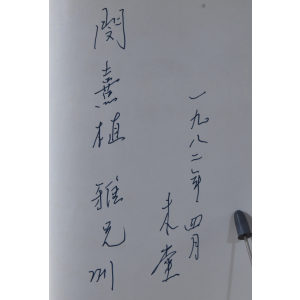 閔熹植 雅兄 州
一九八二年 四月
未堂